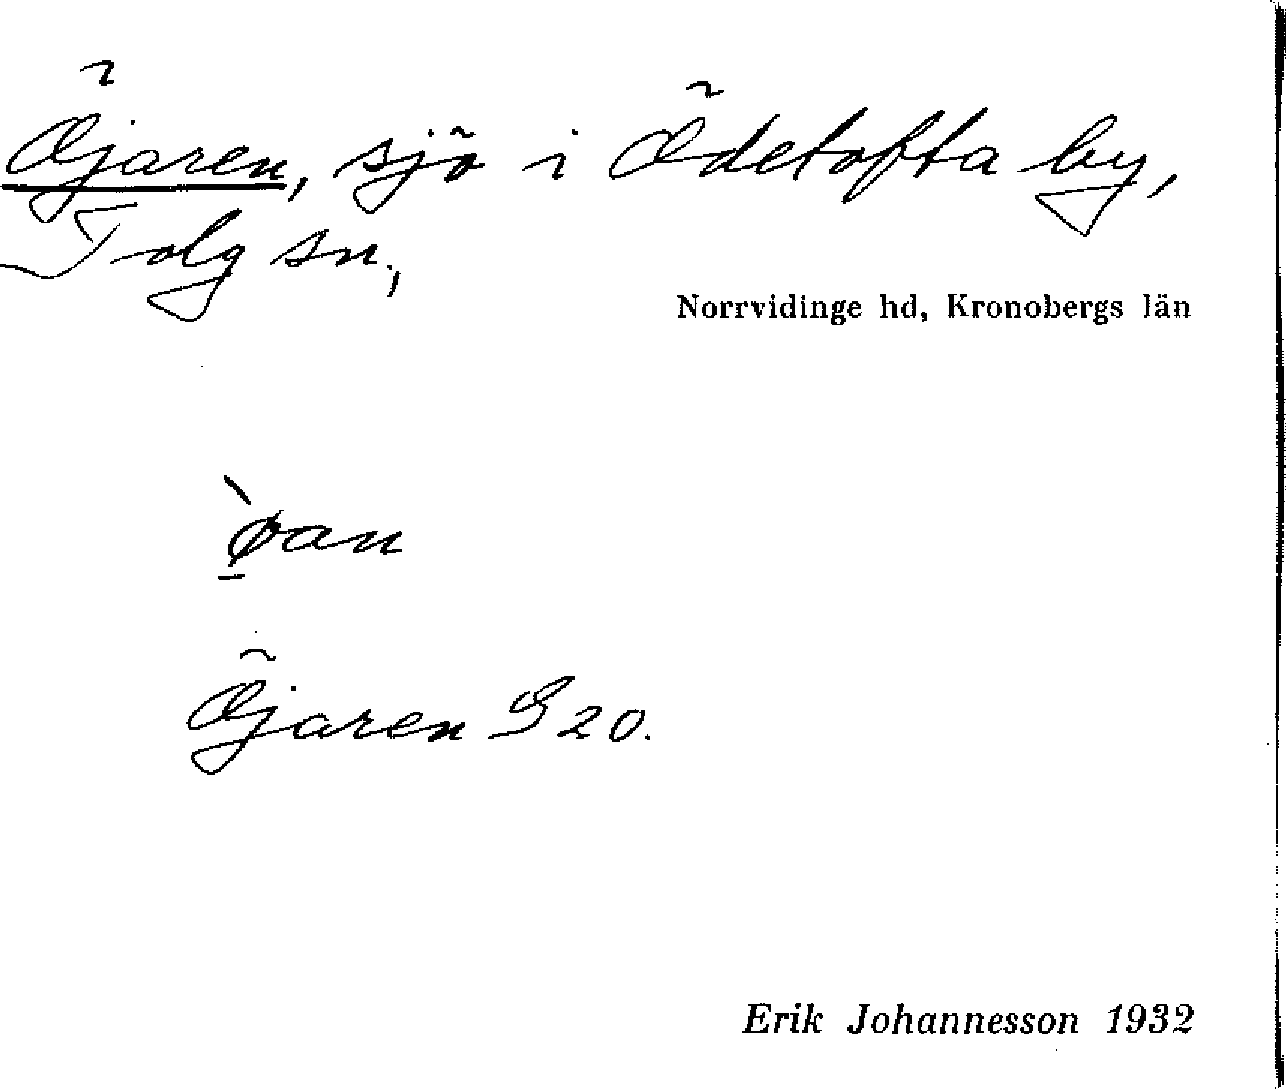 Öjaren, sjö i Ödetofta by,
Tolg sn,
Norrvidinge hd, Kronobergs län
Öjaren G 20.
Erik Johannesson 1932